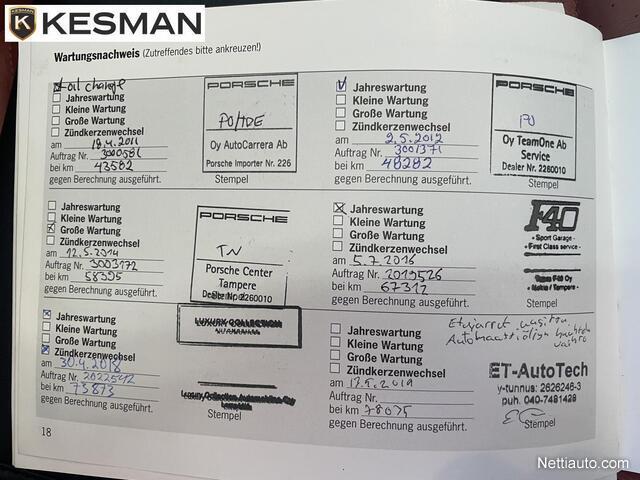 KESMAN
KESMAN
Wartungsnachweis (Zutreffendes bitte ankreuzen!)
oil change
Jahreswartung
Kleine Wartung
Große Wartung
Zündkerzenwechsel
am 19.4.2011
Auftrag Nr. 3000581
bei km 43582
gegen Berechnung ausgeführt.
PORSCHE
PO/TDE
Oy AutoCarrera Ab
Porsche Importer Nr. 226
Stempel
Jahreswartung
Kleine Wartung
Große Wartung
Zündkerzenwechsel
am 2.5.2012
Auftrag Nr. 3001371
bei km 48282
gegen Berechnung ausgeführt.
PORSCHE
PO
Oy TeamOne Ab
Service
Dealer Nr. 2260010
Stempel
Jahreswartung
Kleine Wartung
Große Wartung
Zündkerzenwechsel
am 12.5.2014
Auftrag Nr. 3003172
bei km 58395
gegen Berechnung ausgeführt.
PORSCHE
TN
Porsche Center
Tampere
Dealer Nr. 2260010
Jahreswartung
Kleine Wartung
Große Wartung
Zündkerzenwechsel
am 5.7.2016
Auftrag Nr. 2019526
bei km 67312
gegen Berechnung ausgeführt.
F40
- Sport Garage -
- First Class service -
Team F40 Oy
- Nokia / Tampere -
Stempel
Jahreswartung
Kleine Wartung
Große Wartung
Zündkerzenwechsel
am 30.4.2018
Auftrag Nr. 2022542
bei km 73873
gegen Berechnung ausgeführt.
LUXURY COLLECTION
Luxury Collection Automobiles Oy
Stempel
Jahreswartung
Kleine Wartung
Große Wartung
Zündkerzenwechsel
am 17.5.2019
Auftrag Nr.
bei km 78075
gegen Berechnung ausgeführt.
Etujarrut uusittu
Automaattiöljyn
vaihto
ET-AutoTech
y-tunnus: 2626246-3
puh. 040-7481428
Stempel
18
Nettiauto.com